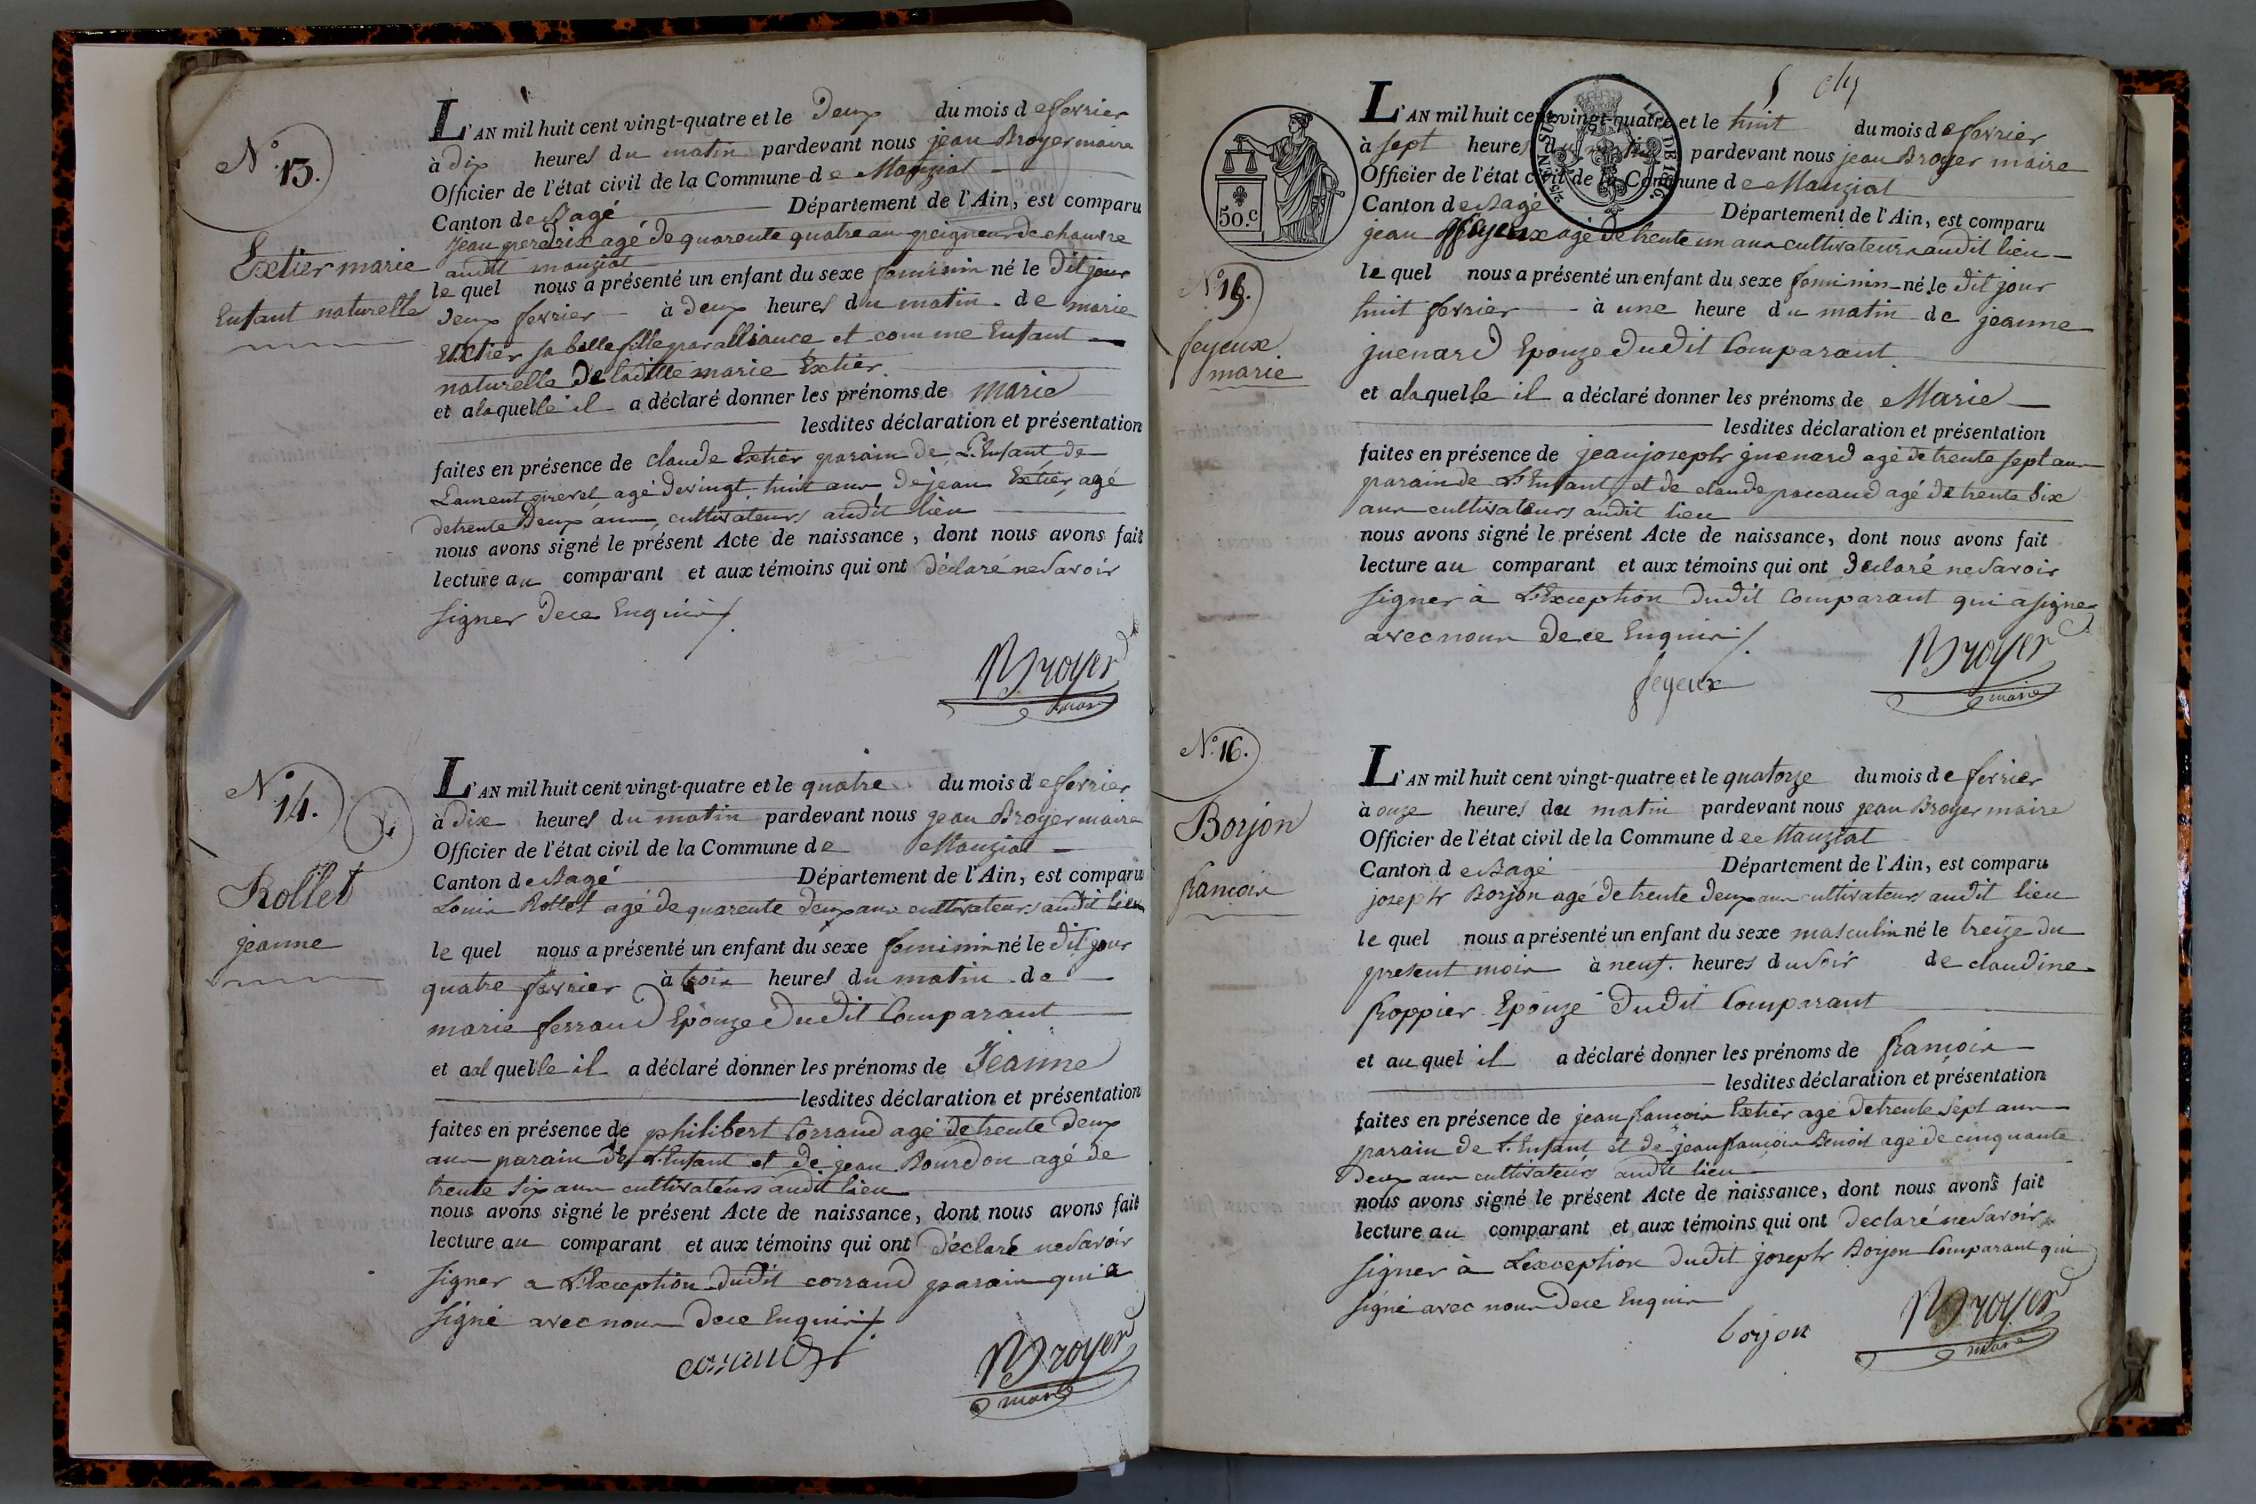 N° 13.
Extier marie
Enfant naturelle
L'AN mil huit cent vingt-quatre et le Deux du mois de fevrier
à dix heures du matin pardevant nous jean Broyer maire
Officier de l'état civil de la Commune de Manziat
Canton de Bagé Département de l'Ain, est comparu
jean perdrix agé de quarente quatre ans peigneur de chanvre
audit manziat
le quel nous a présenté un enfant du sexe feminin né le dit jour
Deux fevrier à deux heures du matin de marie
Extier sa belle fille par alliance et comme Enfant
naturelle De laditte marie Extier
et a laquelle il a déclaré donner les prénoms de marie
lesdites déclaration et présentation
faites en présence de claude Extier parain de L'Enfant de
Laurent agé de vingt huit ans de jean Extier agé
de trente Deux ans, cultivateurs audit lieu
nous avons signé le présent Acte de naissance, dont nous avons fait
lecture au comparant et aux témoins qui ont déclaré ne Savoir
signer De ce Enquis
Broyer
maire
N° 14.
Rollet
jeanne
L'AN mil huit cent vingt-quatre et le quatre du mois de fevrier
à dix heures du matin pardevant nous jean Broyer maire
Officier de l'état civil de la Commune de Manziat
Canton de Bagé Département de l'Ain, est comparu
Louis Rollet agé de quarente deux ans cultivateurs audit lieu
le quel nous a présenté un enfant du sexe feminin né le dit jour
quatre fevrier à trois heures du matin de
marie ferraud Epouze Dudit Comparant
et aal quelle il a déclaré donner les prénoms de Jeanne
lesdites déclaration et présentation
faites en présence de philibert Corraud agé de trente deux
ans parain de L'Enfant et de jean Bourdon agé de
trente six ans cultivateurs audit lieu
nous avons signé le présent Acte de naissance, dont nous avons fait
lecture au comparant et aux témoins qui ont déclaré ne Savoir
signer a L'Exception dudit corraud parain qui a
signé avec nous De ce Enquis
corraud
Broyer
maire
50.c
DE 1816.
N° 15.
feyeux
marie
L'AN mil huit cent vingt-quatre et le huit du mois de fevrier
à sept heures du matin pardevant nous jean Broyer maire
Officier de l'état civil de la Commune de Manziat
Canton de Bagé Département de l'Ain, est comparu
jean feyeux agé de trente un ans cultivateurs audit lieu
le quel nous a présenté un enfant du sexe feminin né le dit jour
huit fevrier à une heure du matin de jeanne
guenard Epouze Dudit Comparant
et a laquelle il a déclaré donner les prénoms de Marie
lesdites déclaration et présentation
faites en présence de jean joseph guenard agé de trente sept ans
parain de L'Enfant et de claude paccaud agé de trente Six
ans cultivateurs audit lieu
nous avons signé le présent Acte de naissance, dont nous avons fait
lecture au comparant et aux témoins qui ont declaré ne Savoir
signer à L'Exception Dudit Comparant qui a signer
avec nous De ce Enquis
feyeux
Broyer
maire
N° 16.
Borjon
francois
L'AN mil huit cent vingt-quatre et le quatorze du mois de fevrier
à onze heures du matin pardevant nous jean Broyer maire
Officier de l'état civil de la Commune de Manziat
Canton de Bagé Département de l'Ain, est comparu
joseph Borjon agé de trente deux ans cultivateurs audit lieu
le quel nous a présenté un enfant du sexe masculin né le treize du
present mois à neuf heures du soir de claudine
froppier Epouze Dudit Comparant
et au quel il a déclaré donner les prénoms de francois
lesdites déclaration et présentation
faites en présence de jean francois Extier agé de trente sept ans
parain de L'Enfant et de jean francois Benoit agé de cinquante
Deux ans cultivateurs audit lieu
nous avons signé le présent Acte de naissance, dont nous avons fait
lecture au comparant et aux témoins qui ont declaré ne Savoir
signer à L'exception dudit joseph Borjon Comparant qui
signé avec nous De ce Enquis
borjon
Broyer
maire